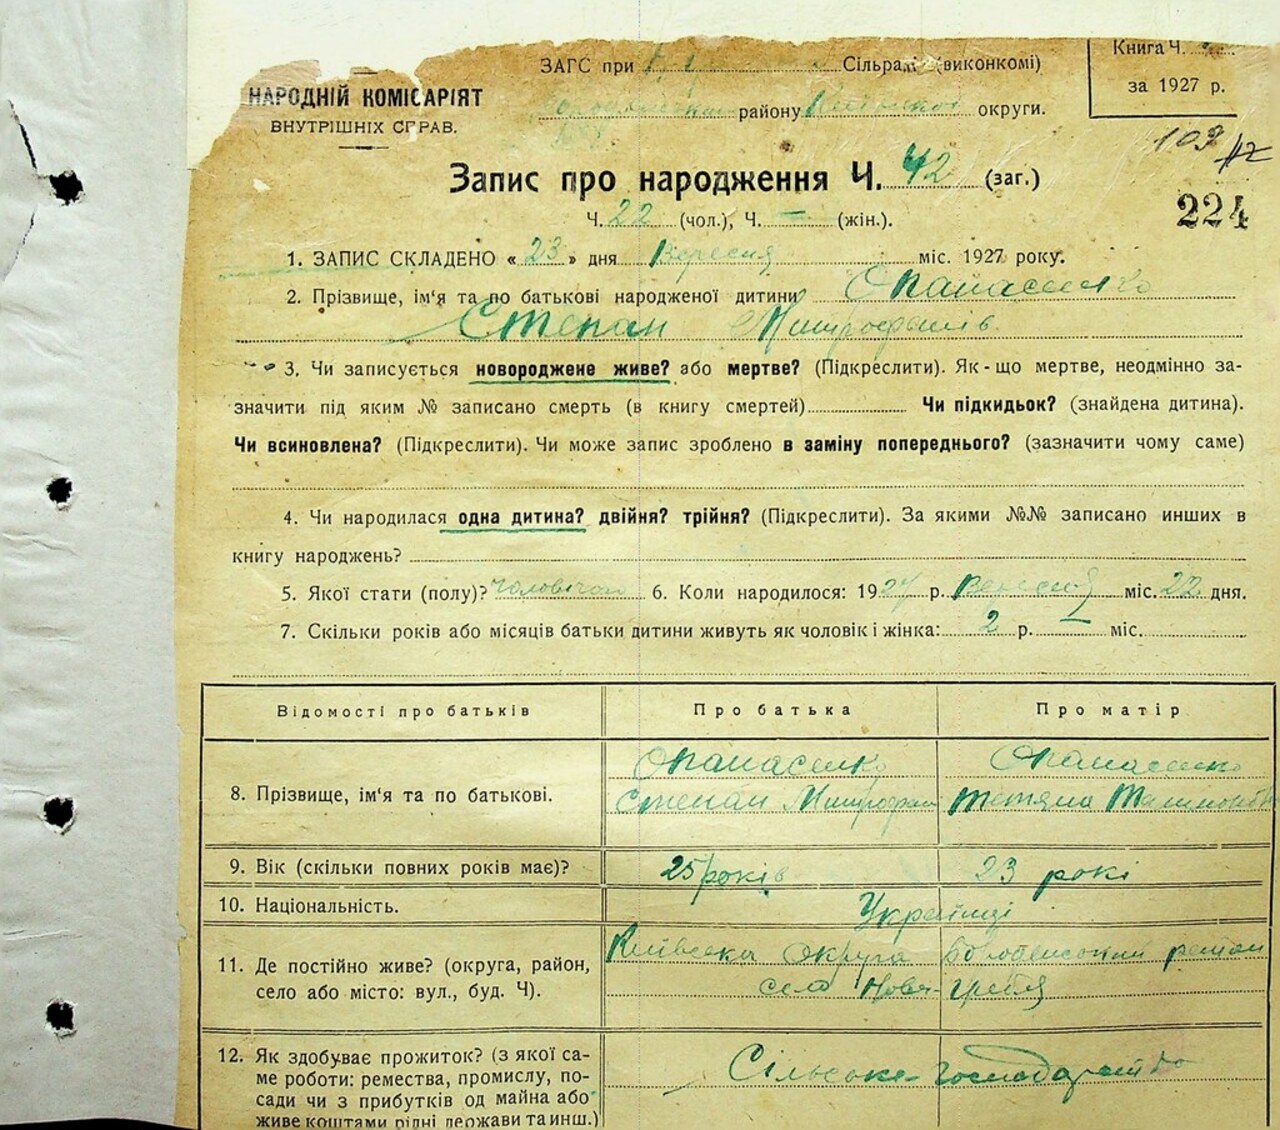 Книга Ч.
за 1927 р.
ЗАГС при Сільраді (виконкомі)
району Київської округи.
НАРОДНІЙ КОМІСАРІЯТ
ВНУТРІШНІХ СПРАВ.
109
Запис про народження Ч. 42 (заг.)
224
Ч. 22 (чол.), Ч. — (жін.).
1. ЗАПИС СКЛАДЕНО « 23 » дня Вересня міс. 1927 року.
2. Прізвище, ім'я та по батькові народженої дитини Опанасенко
Степан Митрофанів
3. Чи записується новороджене живе? або мертве? (Підкреслити). Як-що мертве, неодмінно за-
значити під яким № записано смерть (в книгу смертей) Чи підкидьок? (знайдена дитина).
Чи всиновлена? (Підкреслити). Чи може запис зроблено в заміну попереднього? (зазначити чому саме)
4. Чи народилася одна дитина? двійня? трійня? (Підкреслити). За якими №№ записано инших в
книгу народжень?
5. Якої стати (полу)? чоловічого 6. Коли народилося: 1927 р. Вересня міс. 22 дня.
7. Скільки років або місяців батьки дитини живуть як чоловік і жінка: 2 р. — міс.
Відомості про батьків Про батька Про матір
8. Прізвище, ім'я та по батькові. Опанасенко Опанасенко
Степан Митрофан Тетяна
9. Вік (скільки повних років має)? 25 років 23 рокі
10. Національність. Українці
11. Де постійно живе? (округа, район, Київська округа район
село або місто: вул., буд. Ч). село Нова-Гребля
12. Як здобуває прожиток? (з якої са- Сільське-господарство
ме роботи: ремества, промислу, по-
сади чи з прибутків од майна або
живе коштами рідні держави та инш.)